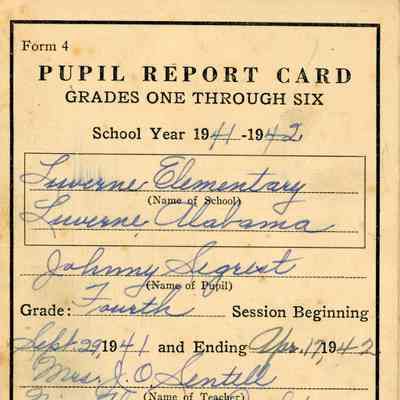 Form 4
PUPIL REPORT CARD
GRADES ONE THROUGH SIX
School Year 1941-1942
Luverne Elementary
(Name of School)
Luverne Alabama
Johnny Segrest
(Name of Pupil)
Grade: Fourth Session Beginning
Sept. 29, 1941 and Ending Apr. 17, 1942
Mrs. J. O. Sentell
(Name of Teacher)